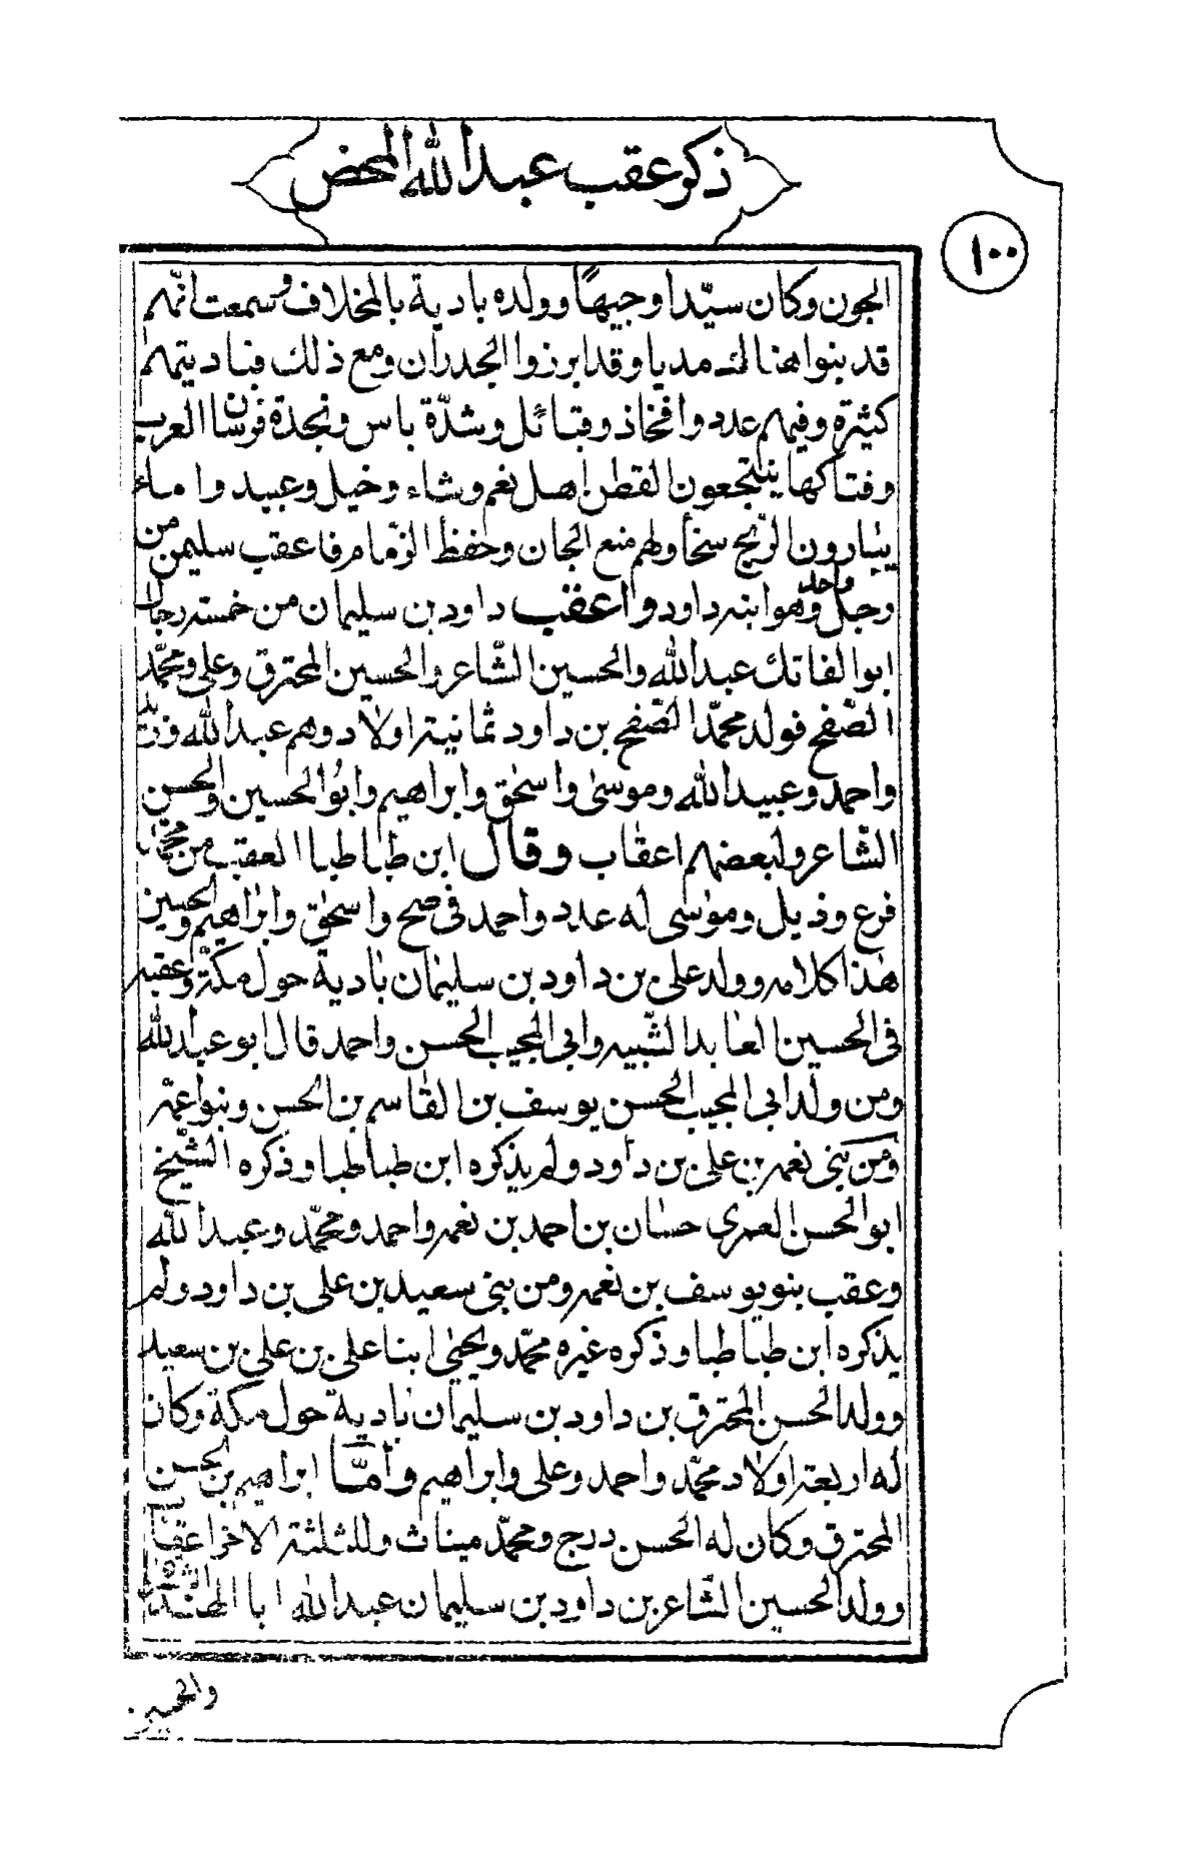 ذكر عقب عبدالله المحض
١٠٠
الجون وكان سيّدا وجيهًا وولده بادية بالمخلاف وسمعت انّهم
قد بنوا هنالك مديا وقد ابرزوا الجدران ومع ذلك فباديتهم
كثيرة وفيهم عدد وافخاذ وقبائل وشدّة باس ونجدة فرسان العرب
وفتاكها ينتجعون القطر اهل نعم وشاء وخيل وعبيد واماء
يبارون الرّيح سخأ ولهم منع الجان وحفظ الزّمام فاعقب سليمن من
رجل واحد وهو ابنه داود واعقب داود بن سليمان من خمسة رجال
ابوالفاتك عبدالله والحسين الشّاعر والحسين المحترق وعلي ومحمّد
الصّفح فولد محمّد الصّفح بن داود ثمانية اولاد وهم عبدالله وزيد
واحمد وعبيدالله وموسى واسحق وابراهيم وابوالحسين والحسن
الشّاعر ولبعضهم اعقاب وقال ابن طباطبا العقب من محمّد
فرع وذيل وموسى له عدد واحمد في صح واسحق وابراهيم والحسين
هذا كلامه وولد علي بن داود بن سليمان بادية حول مكّة وعقبه
في الحسين العابد الشّبيه وابي المجيب الحسن واحمد قال ابوعبدالله
ومن ولد ابي المجيب الحسن يوسف بن القاسم بن الحسن وبنوا عمّه
ومن بني نعمه بن علي بن داود ولم يذكره ابن طباطبا وذكره الشّيخ
ابوالحسن العمري حسان بن احمد بن نعمه واحمد ومحمّد وعبدالله
وعقب بنو يوسف بن نعمه ومن بني سعيد بن علي بن داود ولم
يذكره ابن طباطبا وذكره غيره محمّد ويحيى ابنا علي بن علي بن سعيد
وولد الحسن المحترق بن داود بن سليمان بادية حول مكة وكان
له اربعة اولاد محمّد واحمد وعلي وابراهيم وأمّا ابراهيم بن الحسن
المحترق وكان له الحسن درج ومحمّد ميناث وللثلثة الاخر اعقاب
وولد الحسين الشّاعر بن داود بن سليمان عبدالله ابا الهندي
والحسين